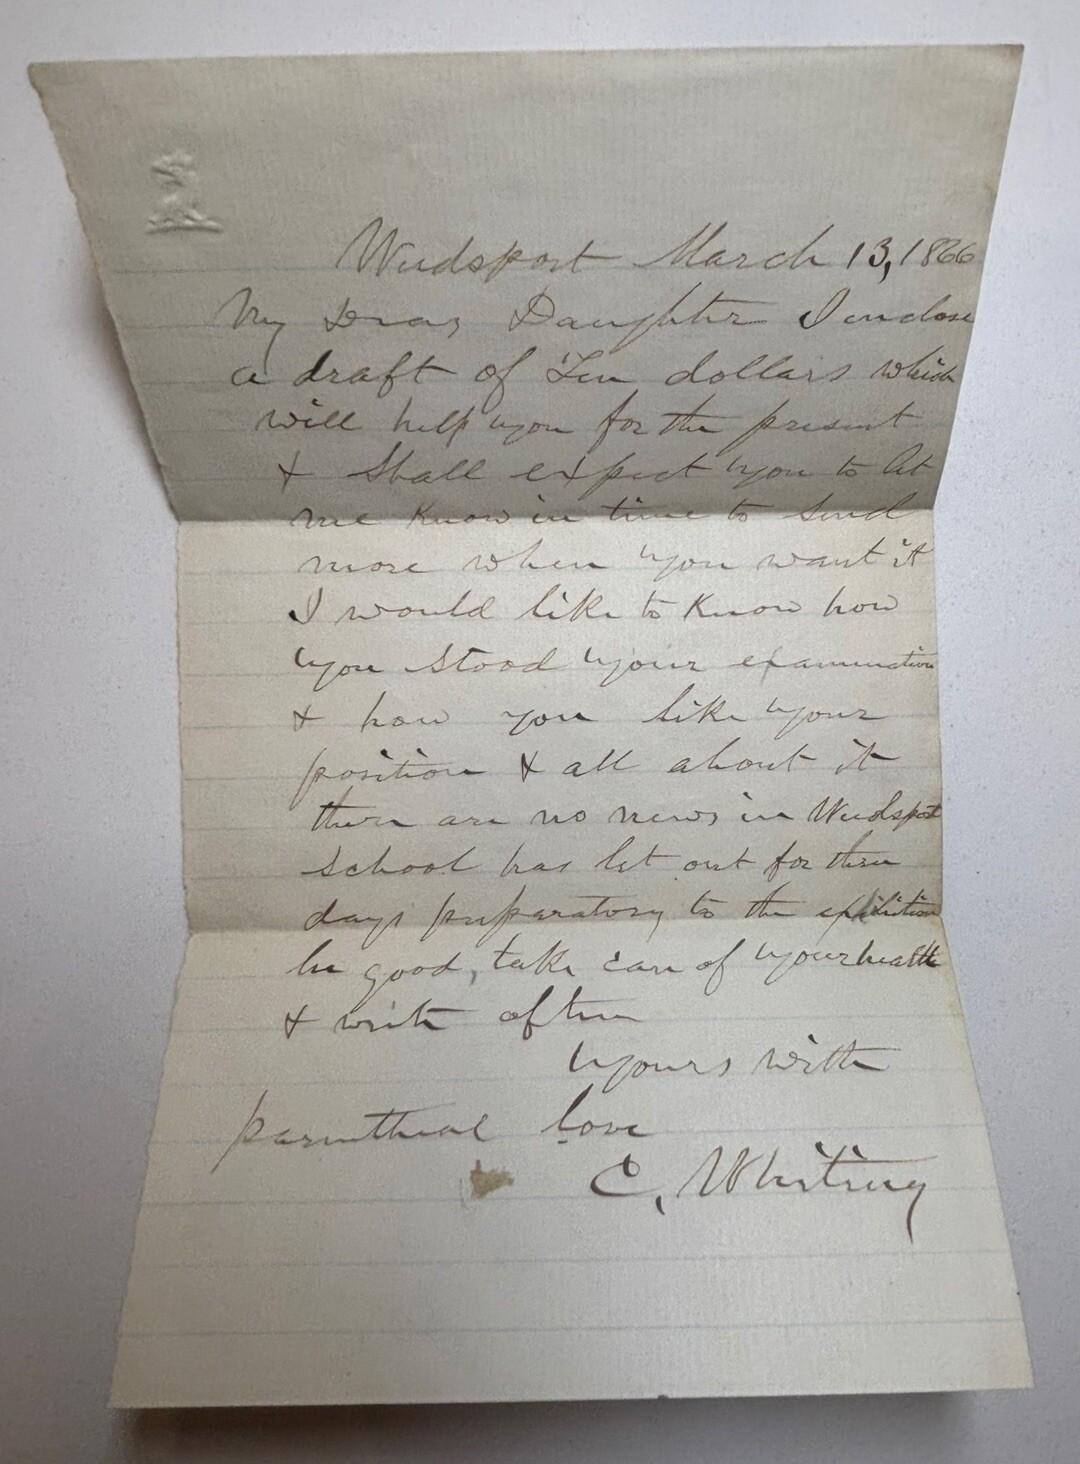 Weedsport March 13, 1866
My Dear Daughter I enclose
a draft of Ten dollars which
will help you for the present
& Shall expect you to let
me know in time to send
more when you want it
I would like to know how
you stood your examination
& how you like your
position & all about it
there are no news in Weedsport
school has let out for three
days preparatory to the exhibition
be good, take care of your health
& write often
yours with
parentheal love
C, Whiting